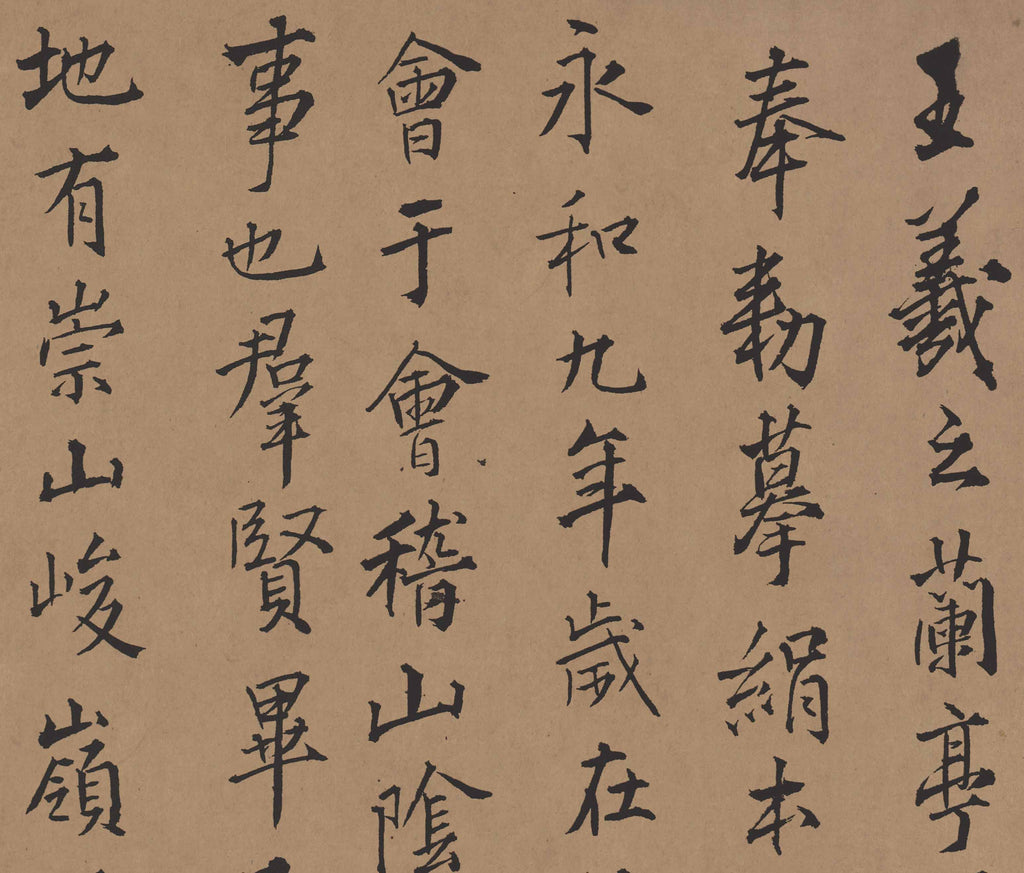 王羲之蘭亭
奉勅摹絹本
永和九年歲在
會于會稽山陰
事也羣賢畢
地有崇山峻嶺